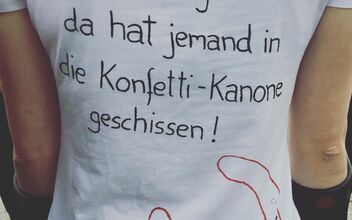 da hat jemand in
die Konfetti-Kanone
geschissen!